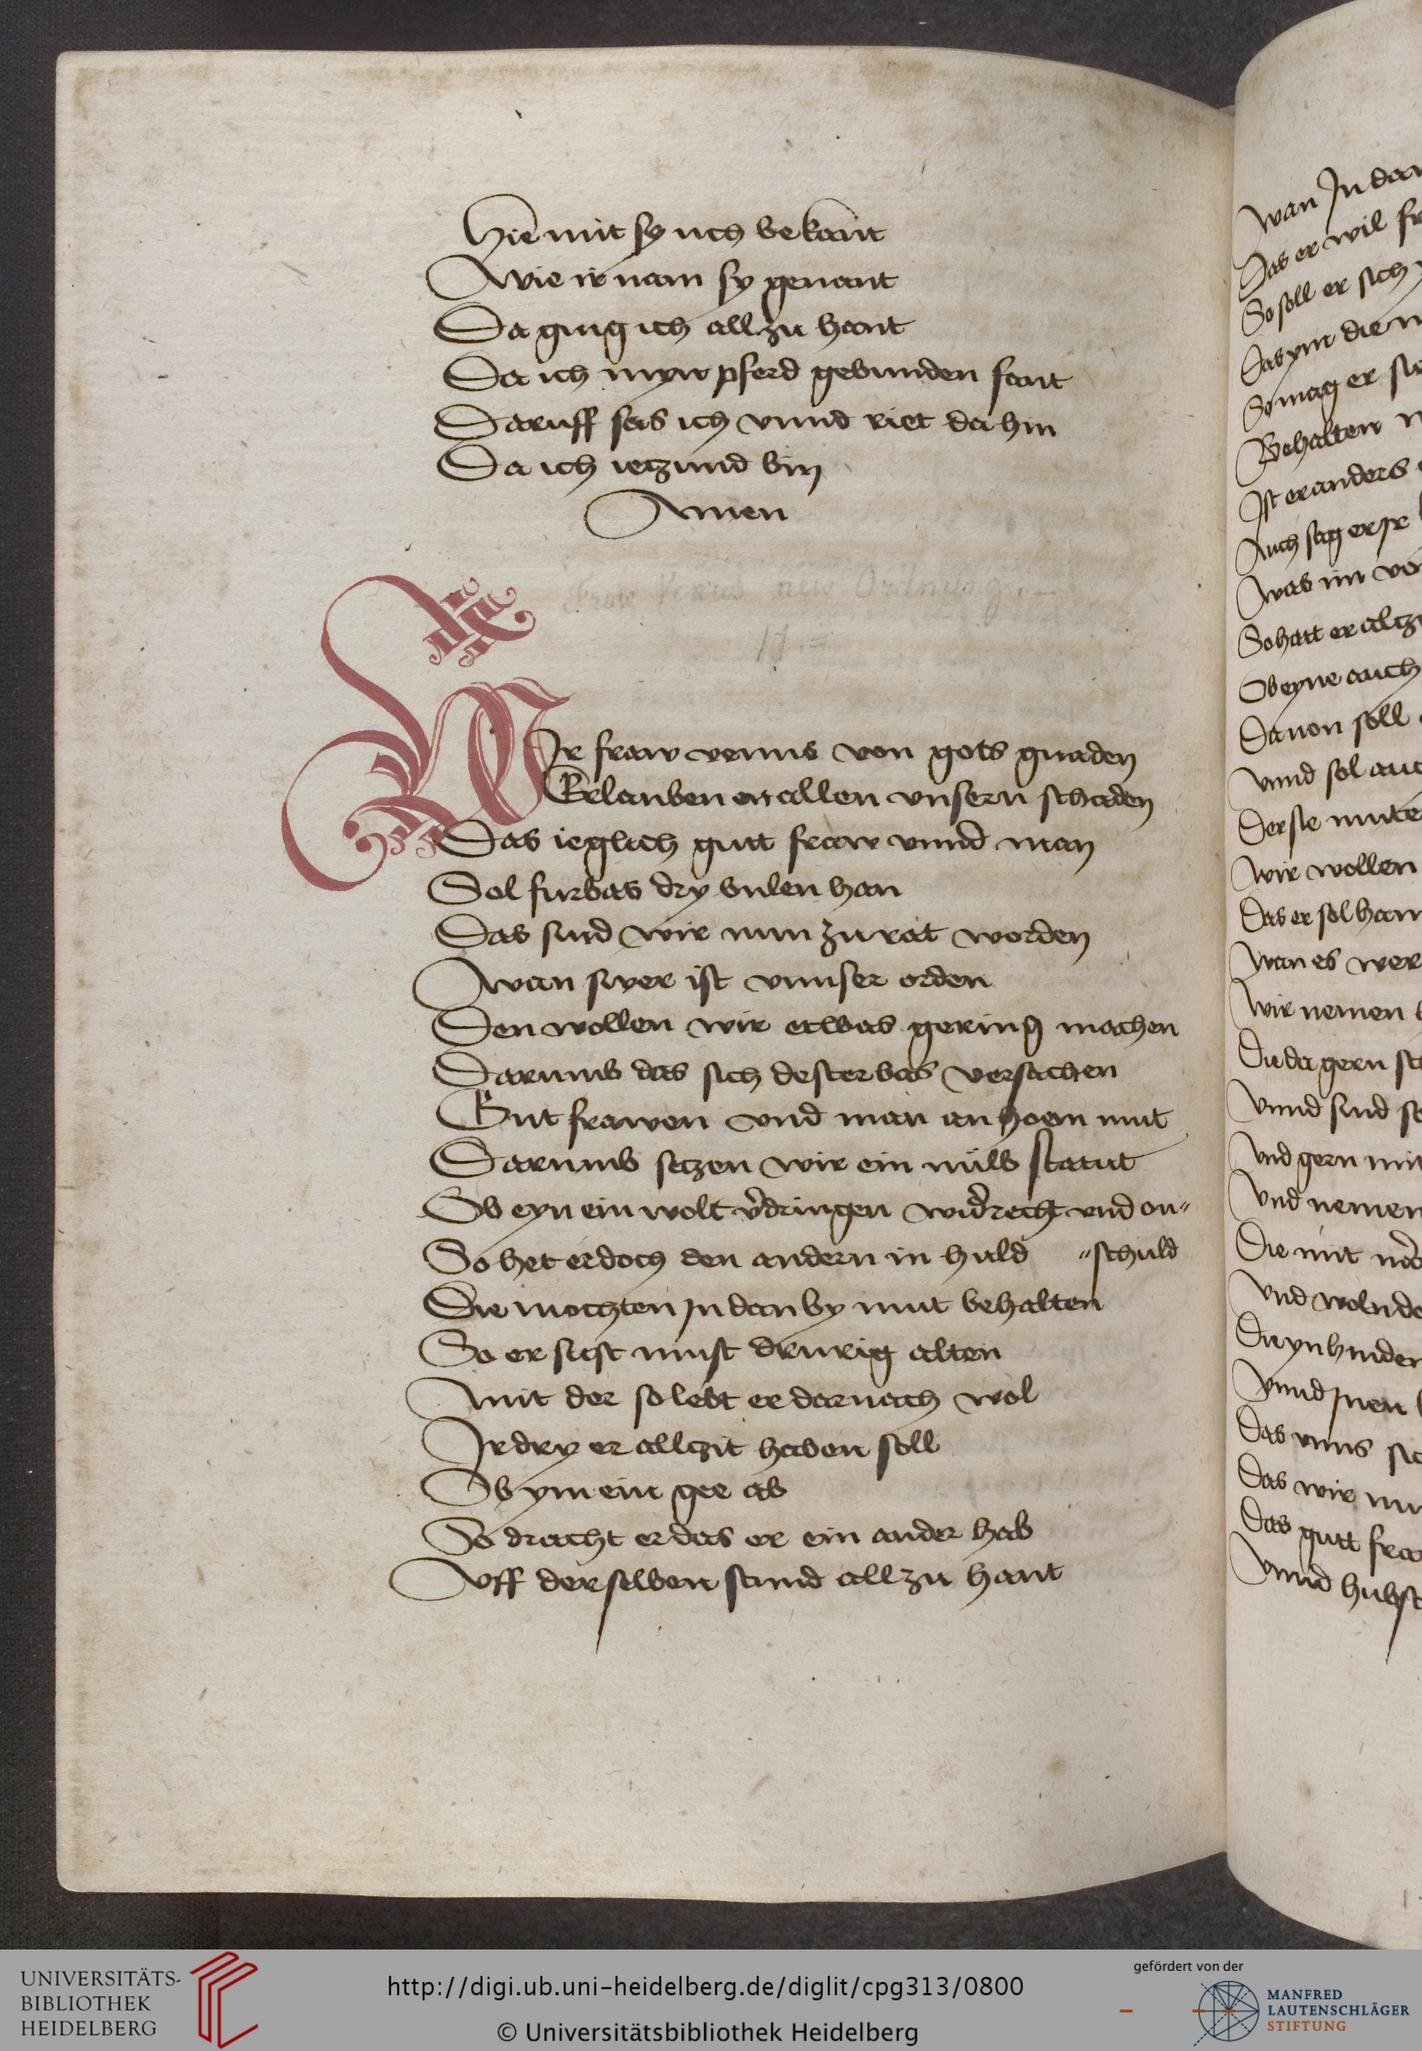 Hie mit sy uch bekant
Wie ir nam sy genant
Da ging ich all zu hant
Da ich myn pferd gebunden fant
Daruff sas ich vnnd riet da hin
Da ich ietzund bin
Amen
Fraw Venus new Ordnung.
Wir fraw venus von gots gnaden
Erlauben on allen vnsern schaden
Das ieglich gutt fraw vnnd man
Sol furbas dry bulen han
Das sind wir nun zu rat worden
Wan swer ist vnnser orden
Den wollen wir etwas gering machen
Darumb das sich dester bas versachen
Gut frawen vnd man an hoem mut
Darumb setzen wir ein nuws statut
Ob eyn ein wolt v̄dringen wid̄recht vnd on„
So het er doch den andern in huld „schuld
Die mochten In dan by mut behalten
So er sust must drurig alten
Mit der so lebt er darnach wol
Ir dry er allczit haben soll
Ob ym ein gee ab
So dracht er das er ein ander hab
Vff der selben stund all zu hant
Wan In dan
Das er wil
So soll er sich
Das ym die
So mag er
Behalten
Ist er anders
Auch sag er
Was im
So hatt er
Ob eyne auch
Dauon soll
Vnnd sol
Der sie
Wir wollen
Das er sol
Wan es wer
Wir nemen
Die da gern
Vnnd sind
Vnd gern mit
Vnd nemen
Die mit
Vnd
Die
Vnnd
Das vnns
Das wir
Das gutt
Vnnd
UNIVERSITÄTS-
BIBLIOTHEK
HEIDELBERG
http://digi.ub.uni-heidelberg.de/diglit/cpg313/0800
© Universitätsbibliothek Heidelberg
gefördert von der
MANFRED
LAUTENSCHLÄGER
STIFTUNG